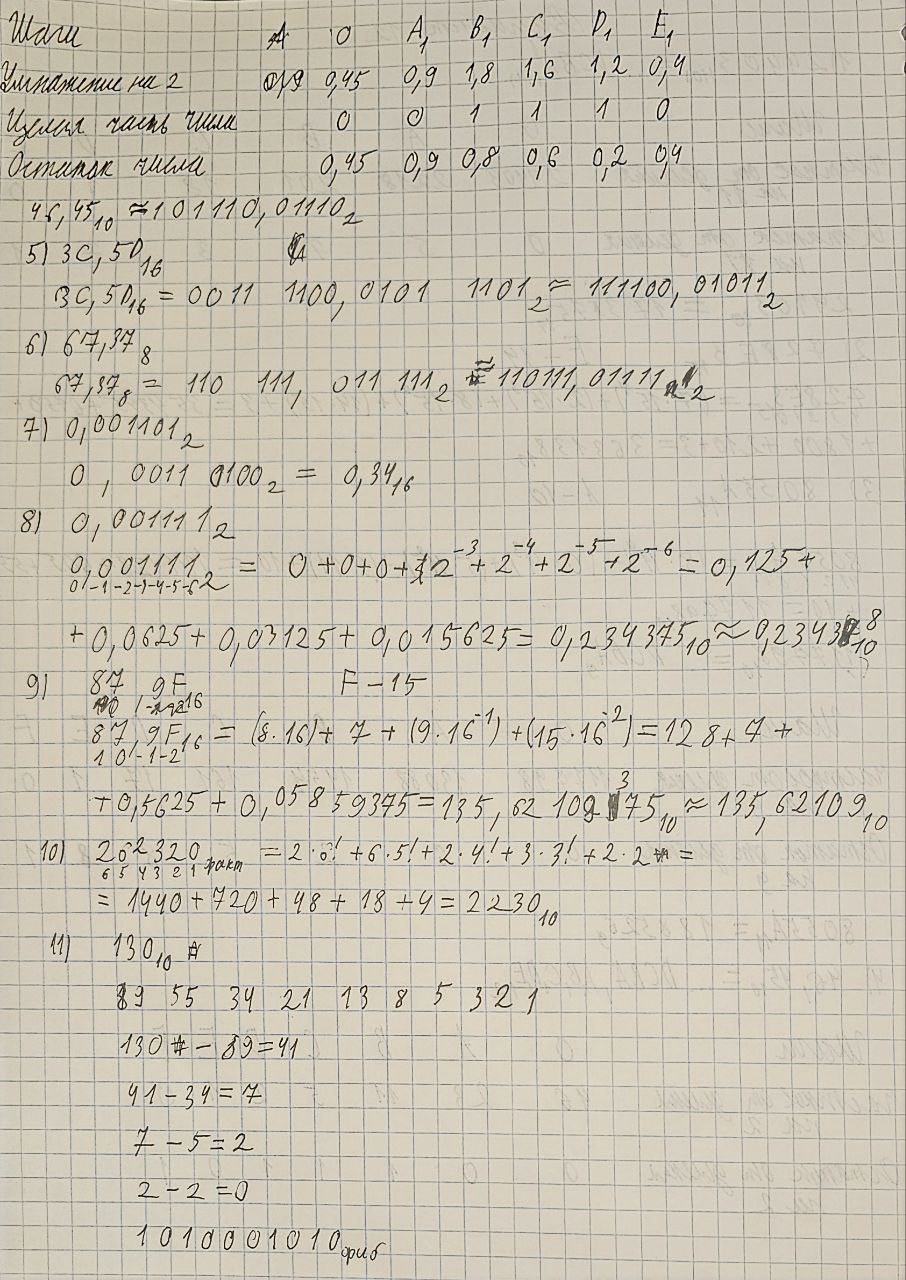 Шаги A 0 A₁ B₁ C₁ D₁ E₁
Умножение на 2 0,9 0,45 0,9 1,8 1,6 1,2 0,4
Целая часть числа 0 0 1 1 1 0
Остаток числа 0,45 0,9 0,8 0,6 0,2 0,4
46,45₁₀ ≈ 101110,01110₂
5) 3C,5D₁₆
3C,5D₁₆ = 0011 1100, 0101 1101₂ ≈ 111100,01011₂
6) 67,37₈
67,37₈ = 110 111, 011 111₂ ≈ 110111,01111₂
7) 0,001101₂
0, 0011 0100₂ = 0,34₁₆
8) 0,001111₂
0,001111₂ = 0+0+0+2⁻³+2⁻⁴+2⁻⁵+2⁻⁶ = 0,125+
0 -1 -2 -3 -4 -5 -6
+ 0,0625 + 0,03125 + 0,015625 = 0,234375₁₀ ≈ 0,23438₁₀
9) 87,9F₁₆ F – 15
87,9F₁₆ = (8·16) + 7 + (9·16⁻¹) + (15·16⁻²) = 128 + 7 +
1 0 -1 -2
+ 0,5625 + 0,05859375 = 135,62109375₁₀ ≈ 135,62109₁₀
10) 262320факт = 2·6! + 6·5! + 2·4! + 3·3! + 2·2 =
6 5 4 3 2 1
= 1440 + 720 + 48 + 18 + 4 = 2230₁₀
11) 130₁₀
89 55 34 21 13 8 5 3 2 1
130 – 89 = 41
41 – 34 = 7
7 – 5 = 2
2 – 2 = 0
1010001010фиб